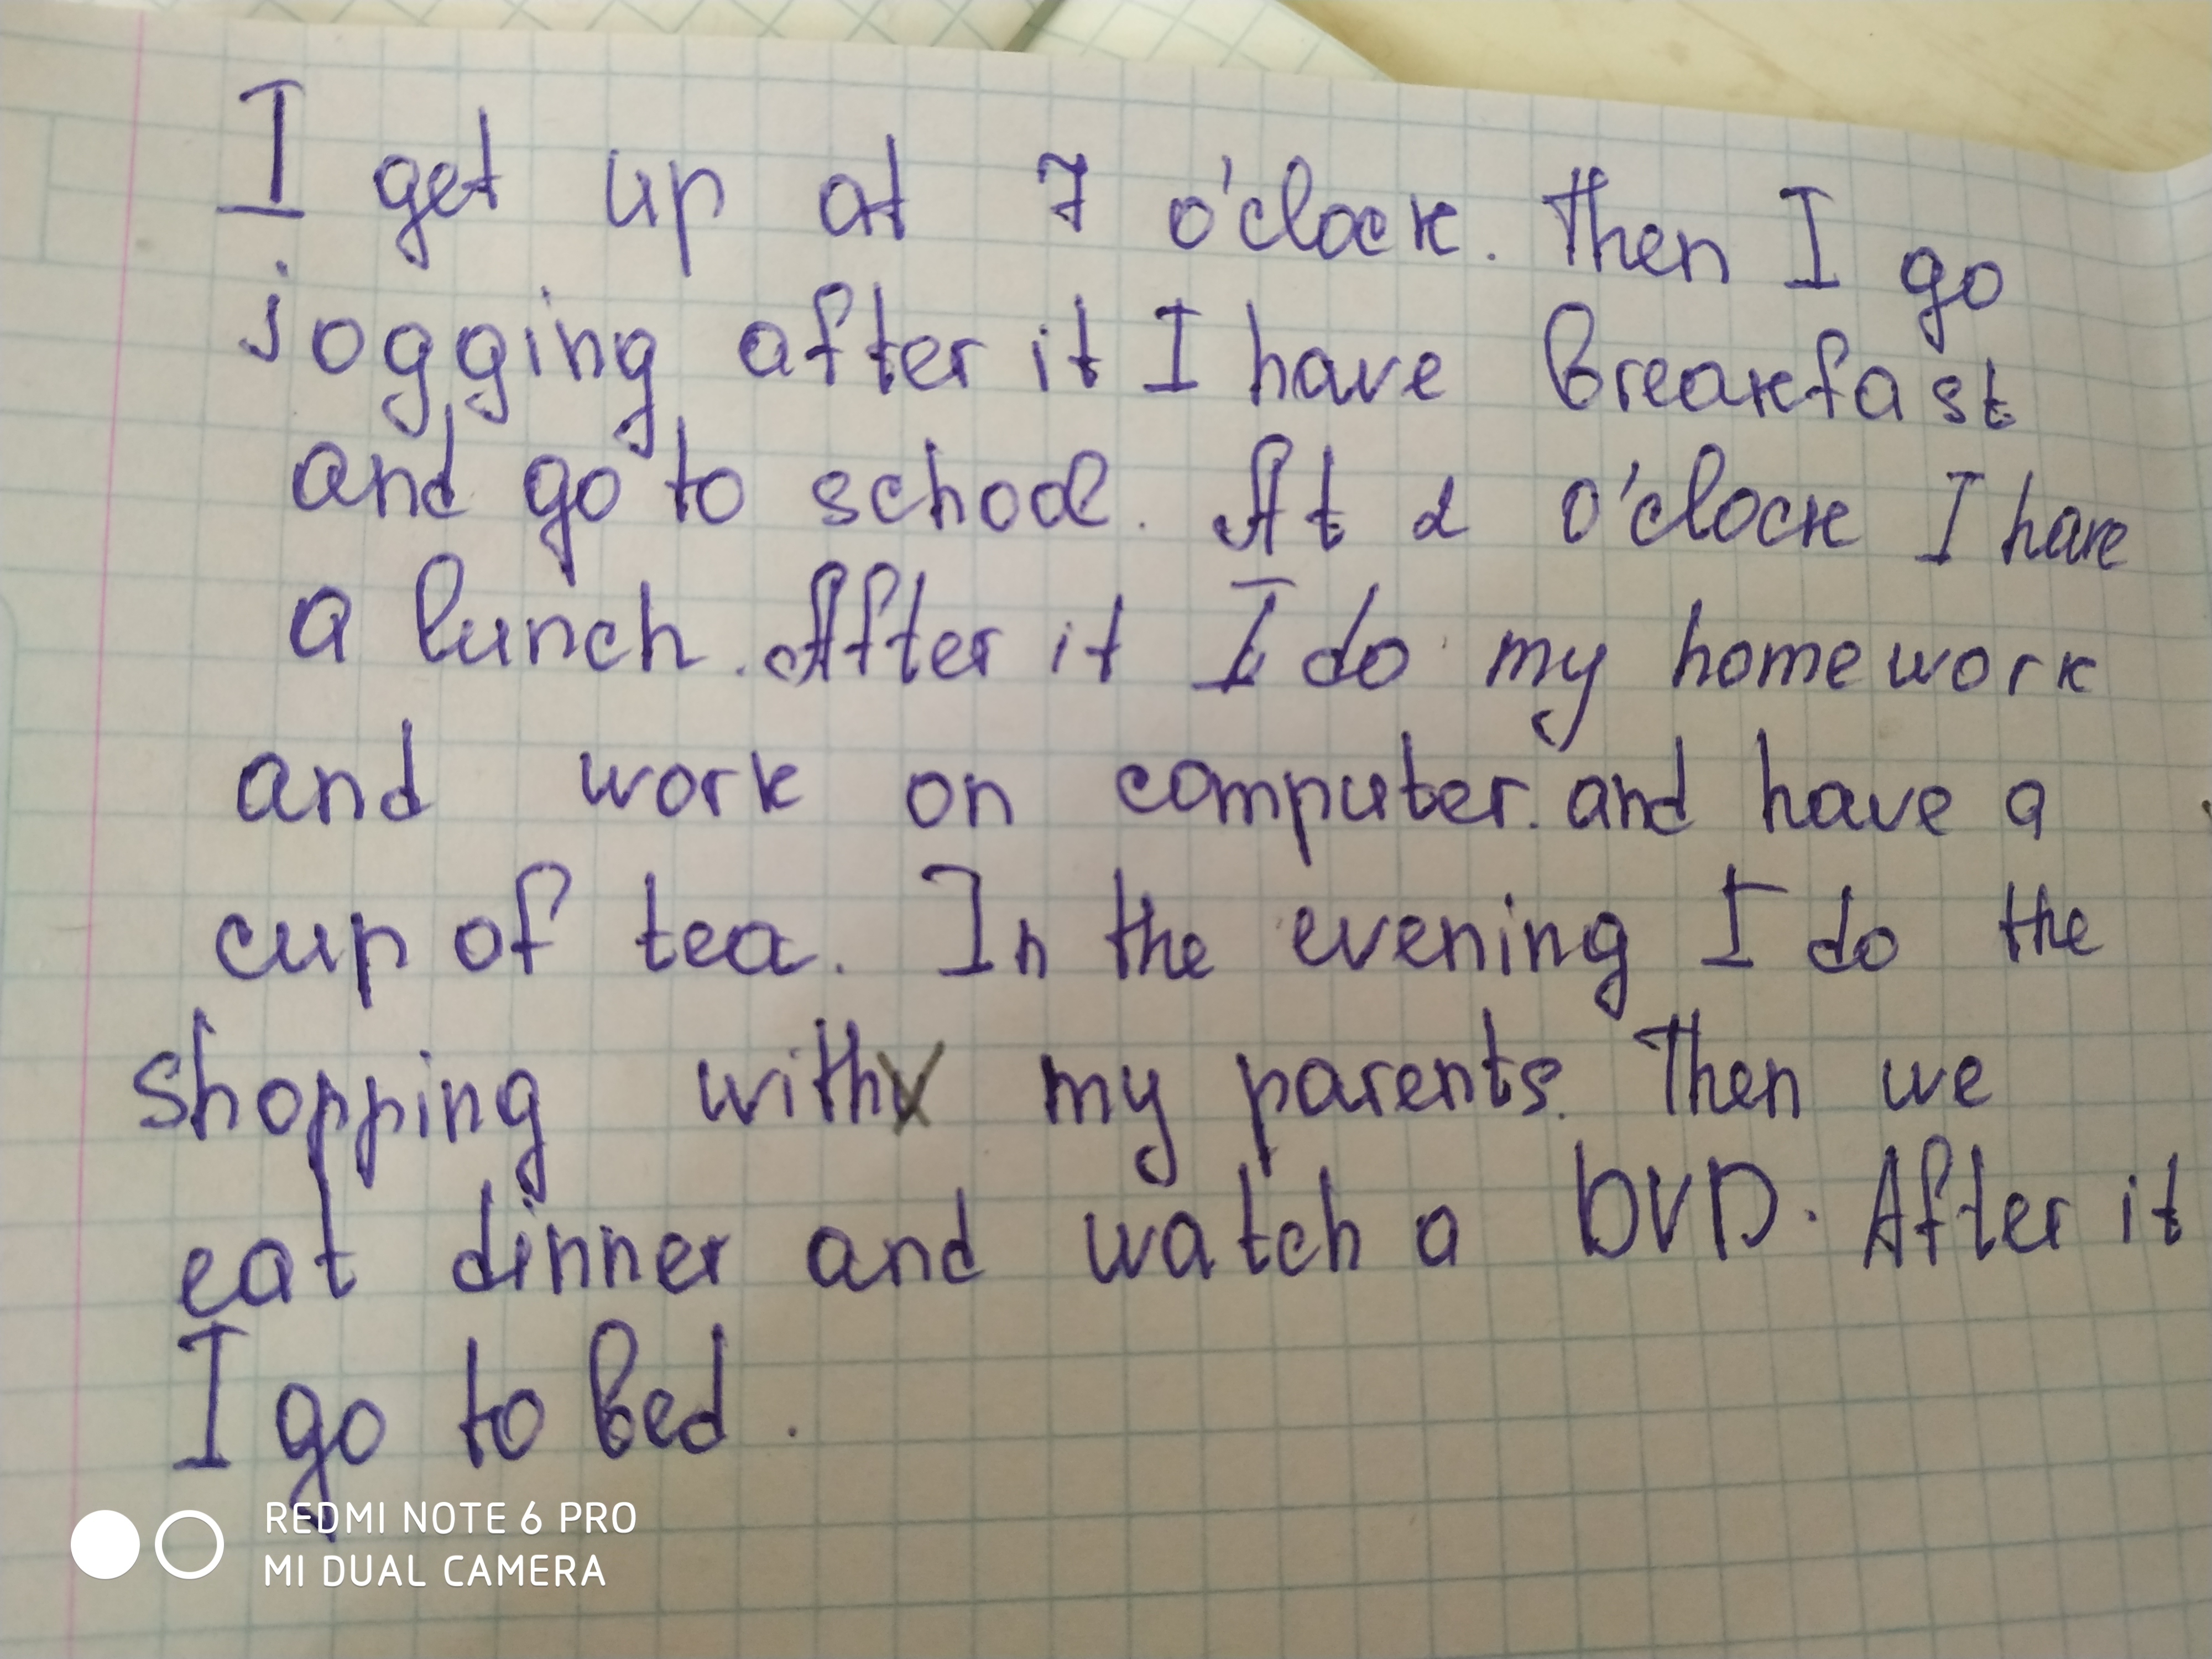 I get up at 7 o'clock. Then I go
jogging after it I have breakfast
and go to school. At 2 o'clock I have
a lunch. After it I do my homework
and work on computer. and have a
cup of tea. In the evening I do the
shopping with my parents. Then we
eat dinner and watch a DVD. After it
I go to bed.
REDMI NOTE 6 PRO
MI DUAL CAMERA